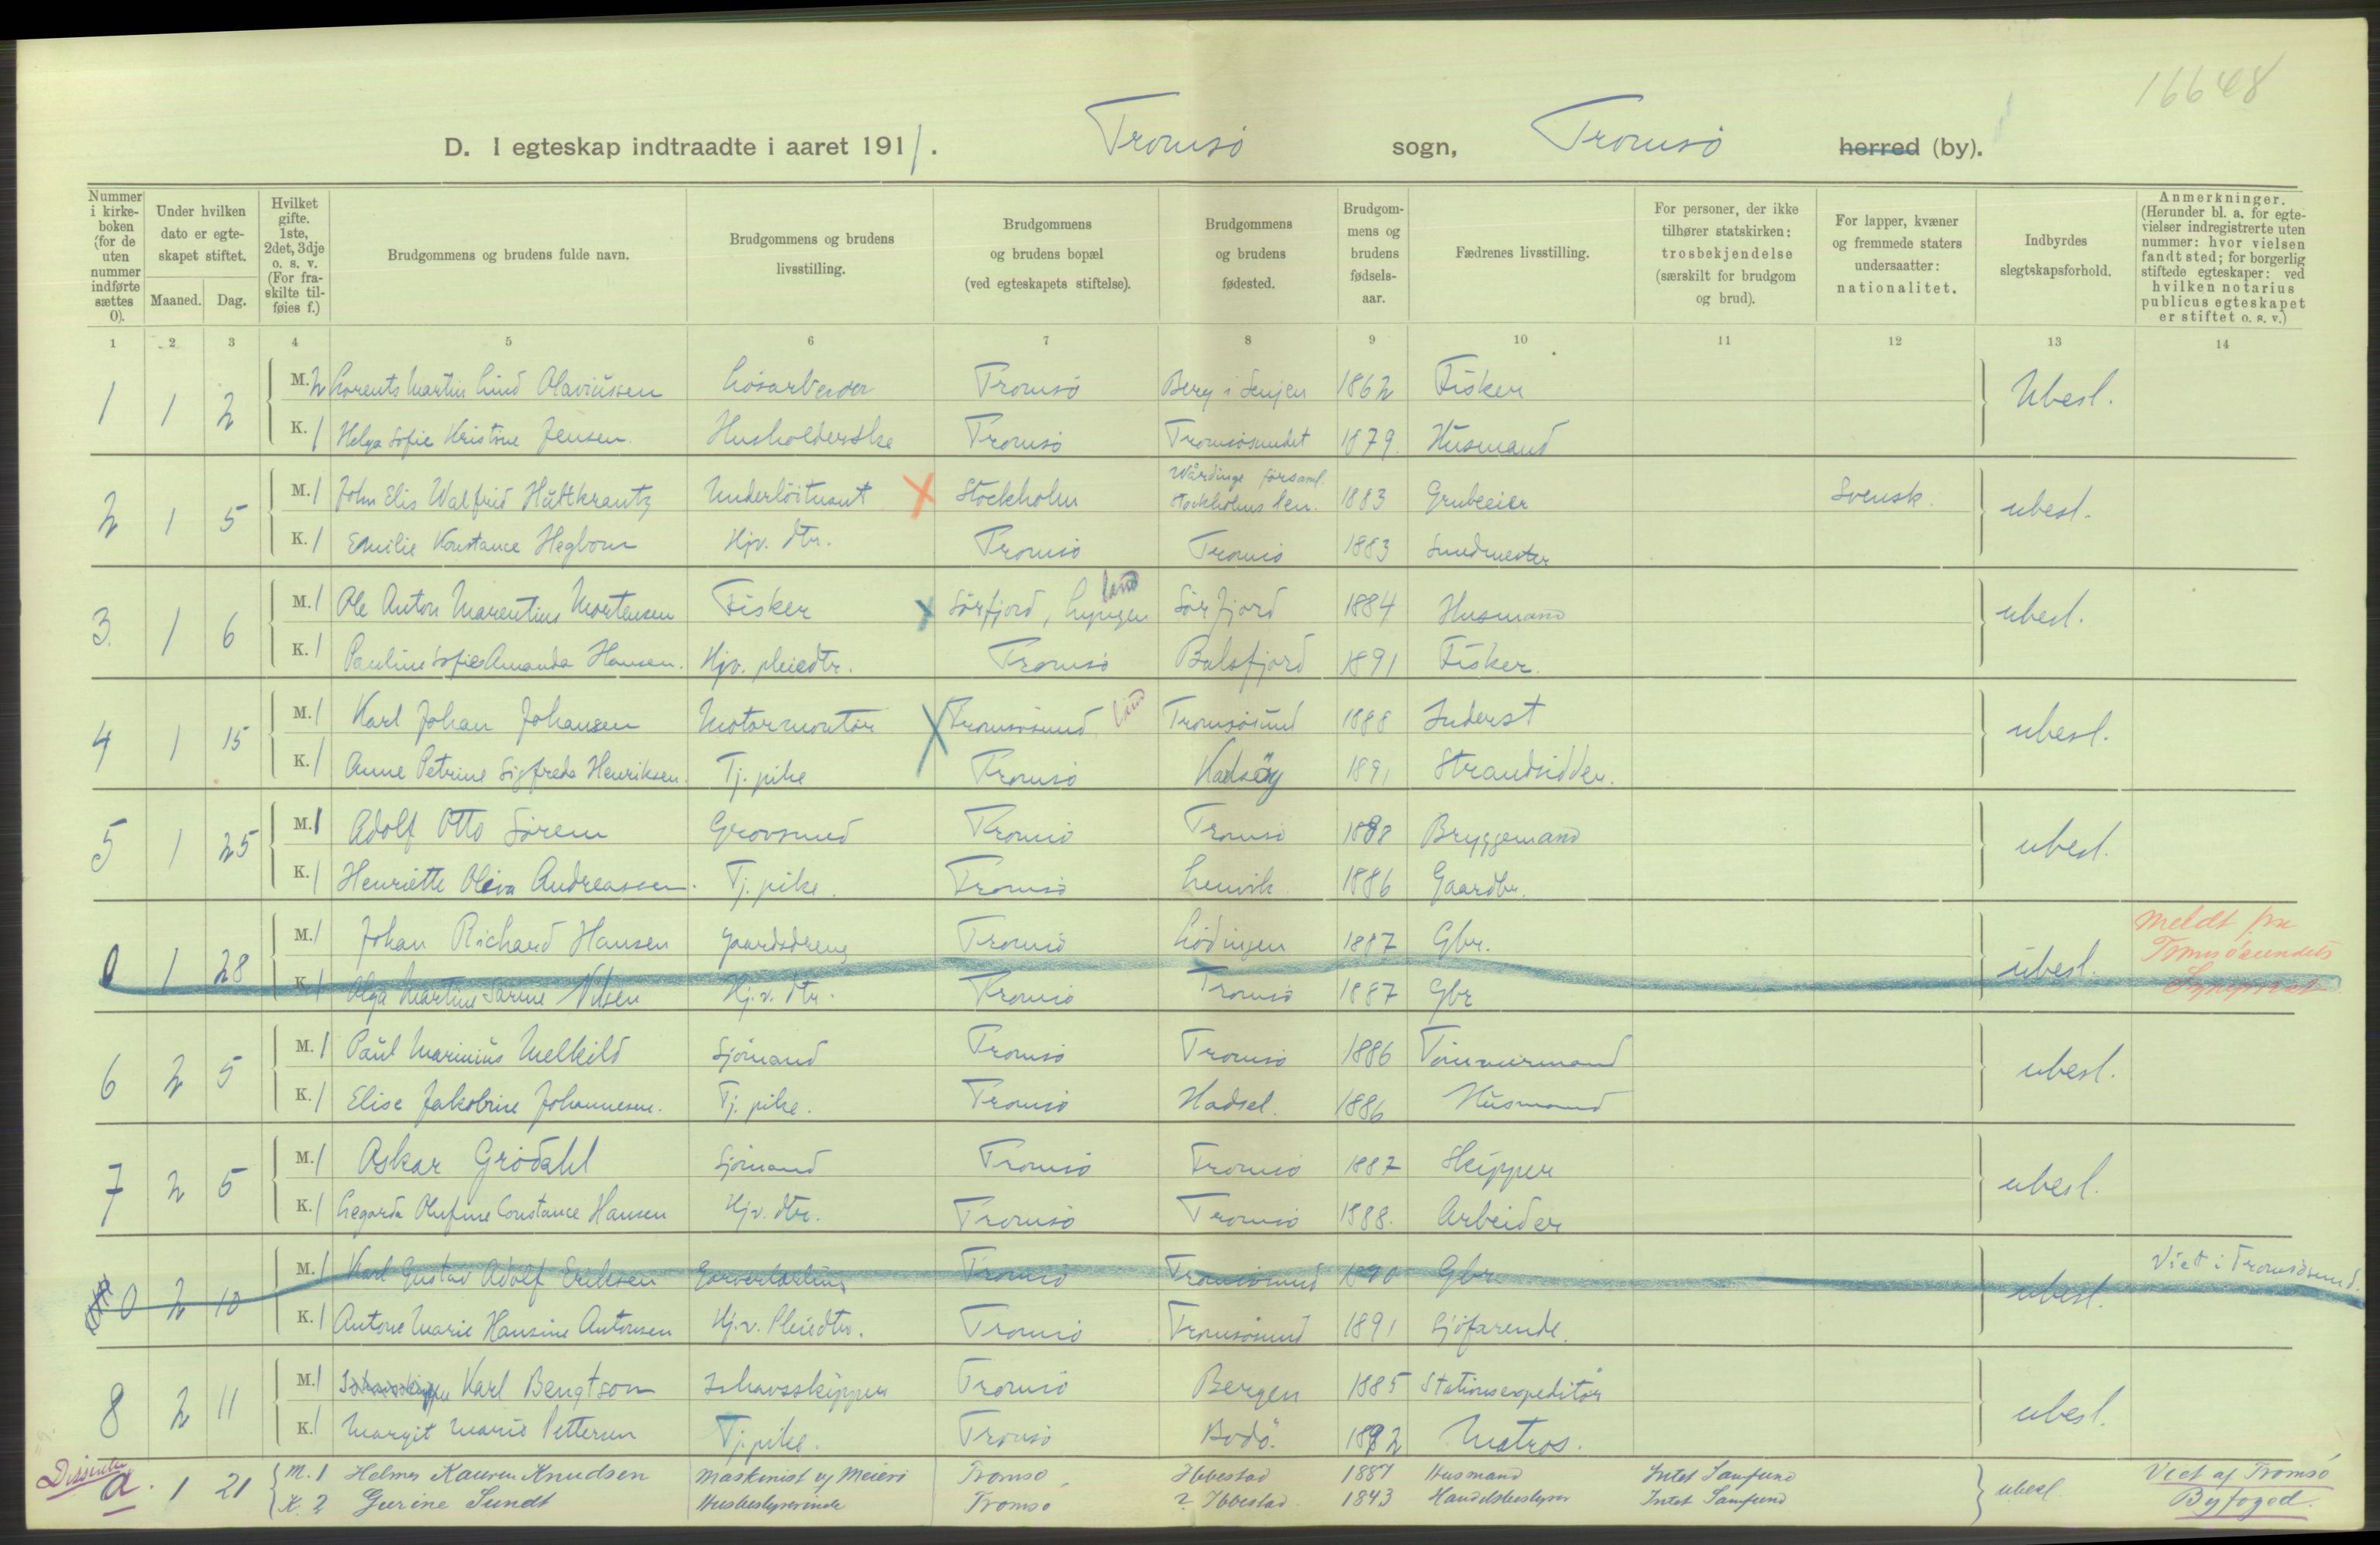 16648
D. I egteskap indtraadte i aaret 1911. Tromsö sogn, Tromsö herred (by).
Nummer i kirke-boken (for de uten nummer indførte sættes 0).
Under hvilken dato er egte-skapet stiftet.
Maaned. Dag.
Hvilket gifte. 1ste, 2det, 3dje o. s. v. (For fra-skilte til-føies f.)
Brudgommens og brudens fulde navn.
Brudgommens og brudens livsstilling.
Brudgommens og brudens bopæl (ved egteskapets stiftelse).
Brudgommens og brudens fødested.
Brudgom-mens og brudens fødsels-aar.
Fædrenes livsstilling.
For personer, der ikke tilhører statskirken: trosbekjendelse (særskilt for brudgom og brud).
For lapper, kvæner og fremmede staters undersaatter: nationalitet.
Indbyrdes slegtskapsforhold.
Anmerkninger. (Herunder bl. a. for egte-vielser indregistrerte uten nummer: hvor vielsen fandt sted; for borgerlig stiftede egteskaper: ved hvilken notarius publicus egteskapet er stiftet o. s. v.)
1 2 3 4 5 6 7 8 9 10 11 12 13 14
1 1 2 M. 2 Lorents Martin Lind Olaviussen Løsarbeider Tromsö Berg i Senjen 1862 Fisker Ubesl.
K. 1 Helga Sofie Kristine Jensen Husholderske Tromsö Tromsösundet 1879. Husmand
2 1 5 M. 1 John Elis Walfrid Hultkrantz Underlöitnant X Stockholm Wårdinge församl. Stockholms len. 1883 Grubeeier Svensk. ubesl.
K. 1 Emilie Konstance Hegbom Hjv. dtr. Tromsö Tromsö 1883 Smedmester
3. 1 6 M. 1 Ole Anton Marentius Mortensen Fisker x Sörfjord, Lyngen land Sörfjord 1884 Husmand ubesl.
K. 1 Pauline Sofie Amanda Hansen. Hjv. pleiedtr. Tromsö Balsfjord 1891 Fisker.
4 1 15 M. 1 Karl Johan Johansen Motormontör X Tromsösund land Tromsösund 1888 Inderst ubesl.
K. 1 Anne Petrine Sigfreda Henriksen. Tj. pike Tromsö 1891 Strandsidder.
5 1 25 M. 1 Adolf Otto Sörem Grovsmed Tromsö Tromsö 1888 Bryggemand ubesl.
K. 1 Henriette Oliva Andreassen. Tj. pike. Tromsö Lenvik 1886 Gaardbr.
0 1 28 M. 1 Johan Richard Hansen Gaardsdreng Tromsö Lödingen 1887 Gbr. ubesl. Meldt fra Tromsösundets
K. 1 Olga Martine Sarine Nilsen Hj.v. dtr. Tromsö Tromsö 1887 Gbr
6 2 5 M. 1 Paul Marinius Melkild Sjömand Tromsö Tromsö 1886 Tömmermand ubesl.
K. 1 Elise Jakobine Johannesen. Tj. pike. Tromsö Hadsel. 1886 Husmand
7 2 5 M. 1 Oskar Grödahl Sjömand Tromsö Tromsö 1887 Skipper ubesl.
K. 1 Legarda Olufine Constance Hansen Hjv. dtr. Tromsö Tromsö 1888. Arbeider
0 2 10 M. 1 Karl Gustav Adolf Eriksen Garverlærling Tromsö Tromsösund 1890 Gbr. ubesl. Viet i Tromsösund.
K. 1 Antone Marie Hansine Antonsen Hj.v. Pleiedtr. Tromsö Tromsösund 1891 Sjöfarende.
8 2 11 M. 1 Karl Bengtson Ishavsskipper Tromsö Bergen 1885 Stationsexpeditör ubesl.
K. 1 Margit Marie Pettersen Tj. pike. Tromsö Bodö. 1892 Matros.
Dissenter
a. 1 21 M. 1 Helmer Kauren Knudsen Maskinist v/ Meieri Tromsö Ibbestad 1887 Husmand Intet Samfund ubesl. Viet af Tromsö
K. 2 Gurine Sundt Husbestyrerinde Tromsö ? Ibbestad 1843 Handelsbestyrer Intet Samfund Byfoged.